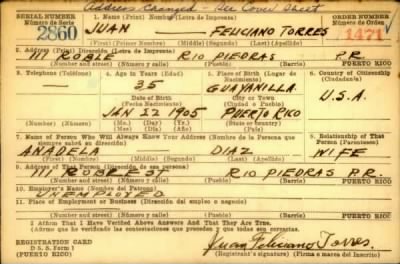 Address Changed - See Cover Sheet
SERIAL NUMBER 1. Name (Print) Nombre (Letra de Imprenta) ORDER NUMBER
Número de Serie Número de Orden
2860 JUAN FELICIANO TORRES 1471
(First) (Primer Nombre) (Middle) (Segundo) (Last) (Apellido)
2. Address (Print) Dirección (Letra de Imprenta)
111 ROBLE RIO PIEDRAS P.R.
(Number and street) (Número y calle) (Town) (Pueblo) PUERTO RICO
3. Telephone (Teléfono) 4. Age in Years (Edad) 5. Place of Birth (Lugar de Nacimiento) 6. Country of Citizenship (Ciudadanía)
35 GUAYANILLA
Date of Birth (Fecha Nacimiento) City or Town (Ciudad o Pueblo) U.S.A.
JAN 12 1905 PUERTO RICO
(Mo.) (Day) (Yr.) State or Country
(Mes) (Día) (Año) (Estado o País)
7. Name of Person Who Will Always Know Your Address (Nombre de la Persona que siempre sabrá su dirección) 8. Relationship of That Person (Parentesco)
ANADELA DIAZ WIFE
(First) (Nombre) (Middle) (Segundo) (Last) (Apellido)
9. Address of That Person (Dirección de esa persona)
111 ROBLE ST RIO PIEDRAS P.R.
(Number and street) (Número y calle) (Town) (Pueblo) PUERTO RICO
10. Employer's Name (Nombre del Patrono)
UNEMPLOYED
11. Place of Employment or Business (Dirección del empleo o negocio)
(Number and street) (Número y calle) (Town) (Pueblo) PUERTO RICO
I Affirm That I Have Verified Above Answers and That They Are True.
(Afirmo que he verificado las contestaciones que preceden y que todas son correctas.)
REGISTRATION CARD Juan Feliciano Torres
D. S. S. Form 1 (Registrant's signature) (Firma o marca del Inscrito)